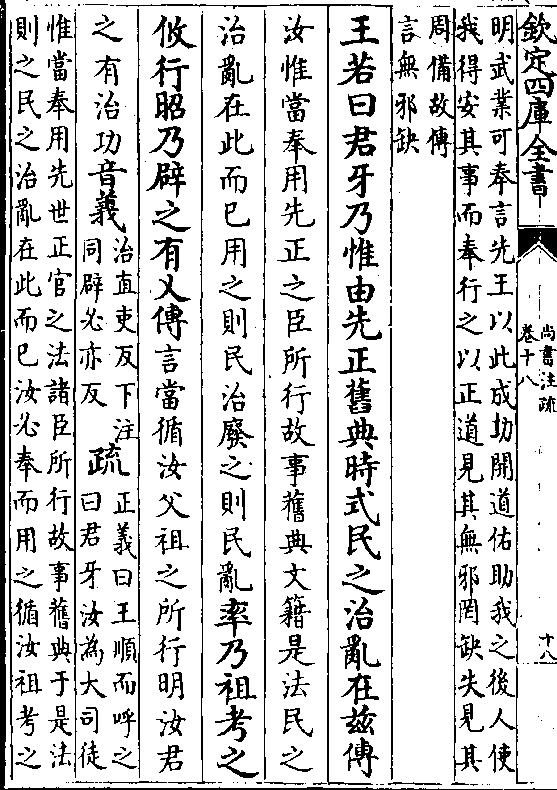 欽定四庫全書
尚書注疏
卷十八
十八
明武業可奉言先王以此成功開道佑助我之後人使
我得安其事而奉行之以正道見其無邪罔缺失見其
周備故傳
言無邪缺
王若曰君牙乃惟由先正舊典時式民之治亂在兹傳
汝惟當奉用先正之臣所行故事舊典文籍是法民之
治亂在此而已用之則民治廢之則民亂率乃祖考之
攸行昭乃辟之有乂傳言當循汝父祖之所行明汝君
之有治功音義治直吏反下注
同辟必亦反疏正義曰王順而呼之
曰君牙汝為大司徒
惟當奉用先世正官之法諸臣所行故事舊典于是法
則之民之治亂在此而已汝必奉而用之循汝祖考之